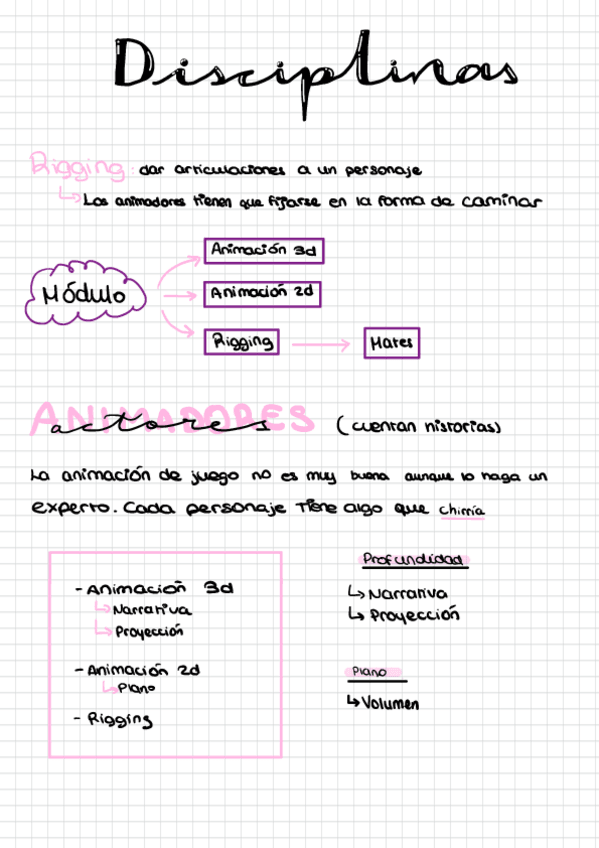 Disciplinas
Rigging: dar articulaciones a un personaje
Los animadores tienen que fijarse en la forma de caminar
Módulo
Animación 3d
Animación 2d
Rigging
Mates
ANIMADORES
actores (cuentan historias)
La animación de juego no es muy buena aunque lo haga un
experto. Cada personaje tiene algo que chirría
- Animación 3d
Narrativa
Proyección
- Animación 2d
Plano
- Rigging
Profundidad
Narrativa
Proyección
Plano
Volumen